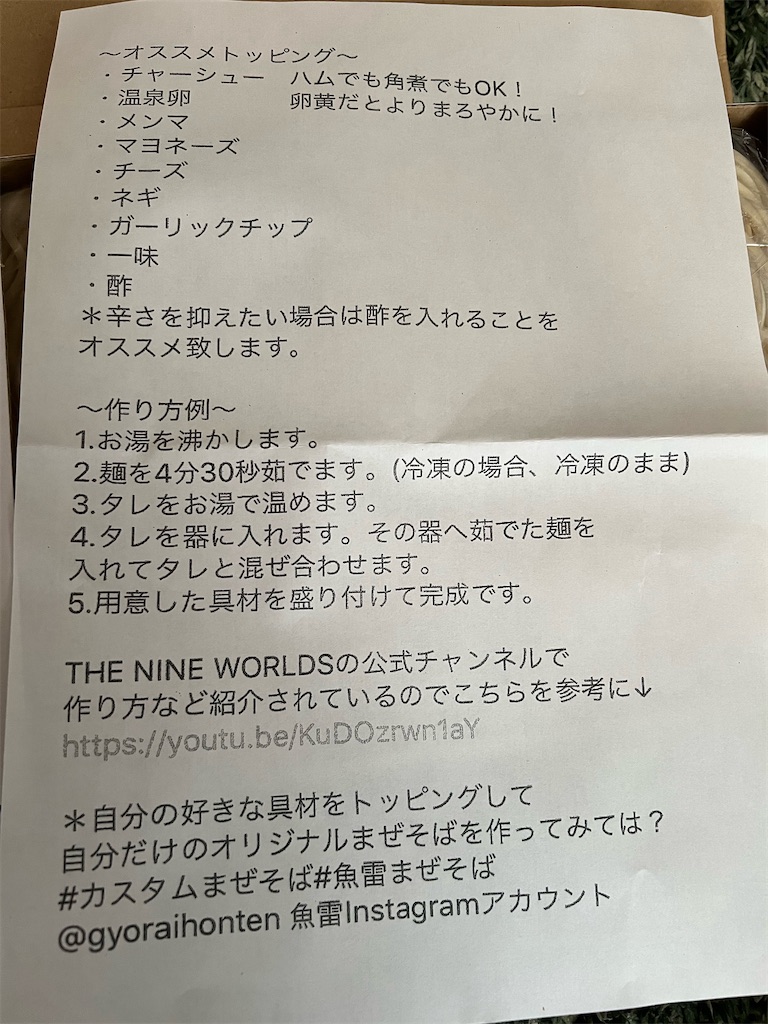 〜オススメトッピング〜
・チャーシュー ハムでも角煮でもOK！
・温泉卵 卵黄だとよりまろやかに！
・メンマ
・マヨネーズ
・チーズ
・ネギ
・ガーリックチップ
・一味
・酢
＊辛さを抑えたい場合は酢を入れることを
オススメ致します。
〜作り方例〜
1.お湯を沸かします。
2.麺を4分30秒茹でます。(冷凍の場合、冷凍のまま)
3.タレをお湯で温めます。
4.タレを器に入れます。その器へ茹でた麺を
入れてタレと混ぜ合わせます。
5.用意した具材を盛り付けて完成です。
THE NINE WORLDSの公式チャンネルで
作り方など紹介されているのでこちらを参考に↓
https://youtu.be/KuDOzrwn1aY
＊自分の好きな具材をトッピングして
自分だけのオリジナルまぜそばを作ってみては？
#カスタムまぜそば#魚雷まぜそば
@gyoraihonten 魚雷Instagramアカウント